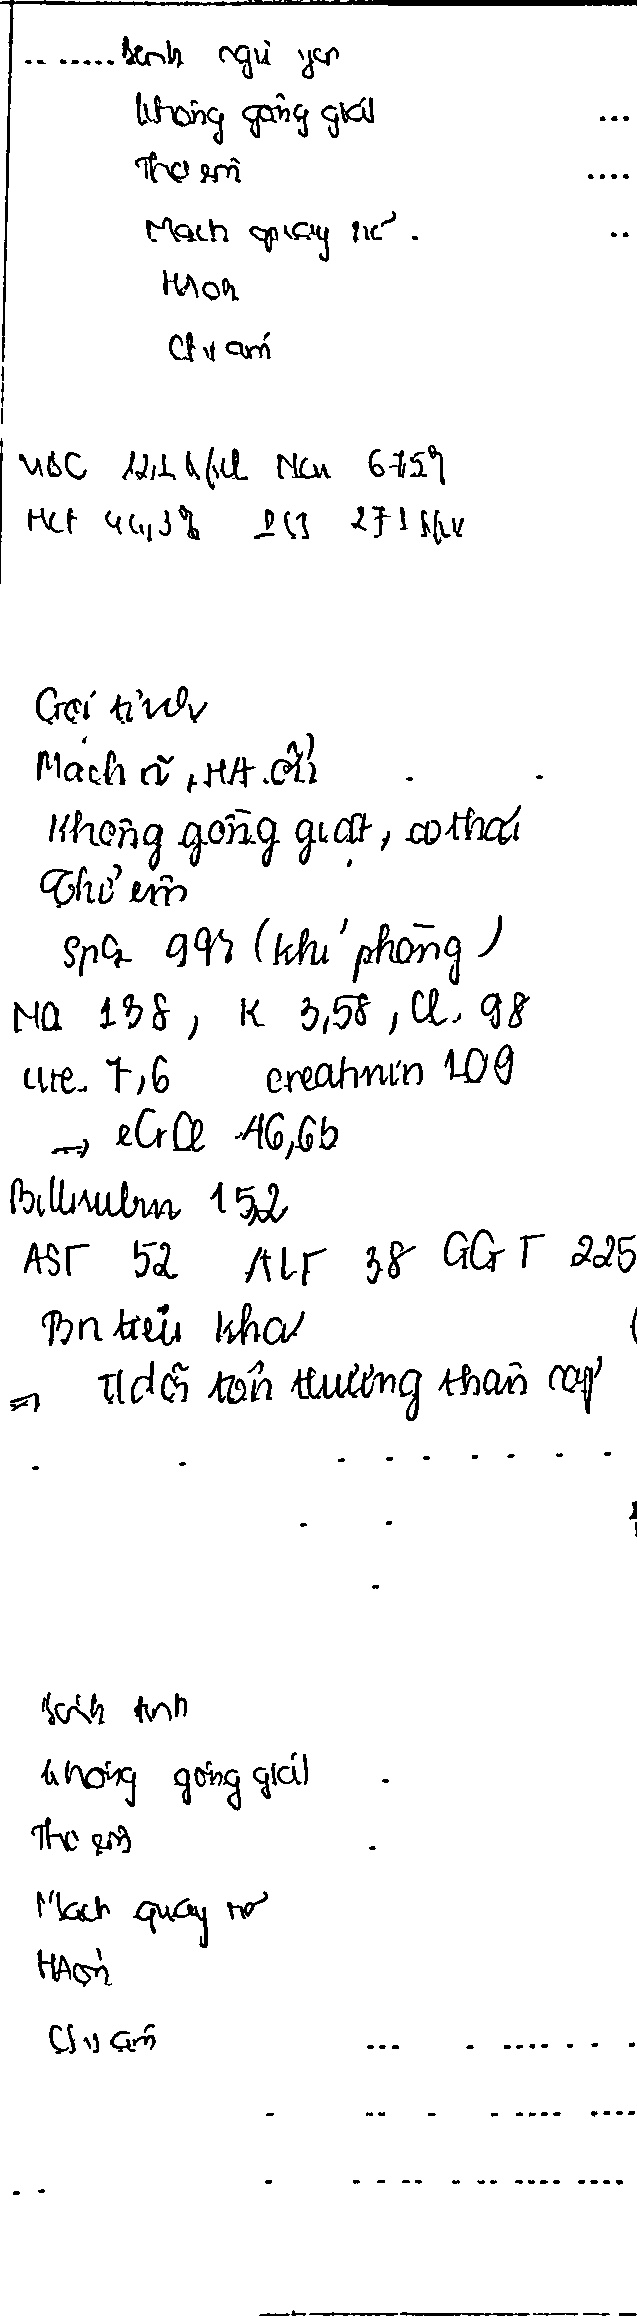 Bệnh ngủ yên
Không gồng giật
Thở êm
Mạch quay rõ.
HA ổn
Chi ấm
WBC 12,1 k/µl Neu 67,5%
Hct 44,3% 271 k/µl
Gọi tỉnh
Mạch rõ, HA ổn
Không gồng giật, co thái
Thở êm
SpO2 99% (khí phòng)
Na 138, K 3,58, Cl. 98
Ure. 7,6 creatinin 109
→ 46,66
Bilirubin 15,2
AST 52 ALT 38 GGT 225
Bn tiểu khá
⇒ TD tổn thương thận cấp
Bệnh tỉnh
Không gồng giật
Thở êm
Mạch quay rõ
HA ổn
Chi ấm